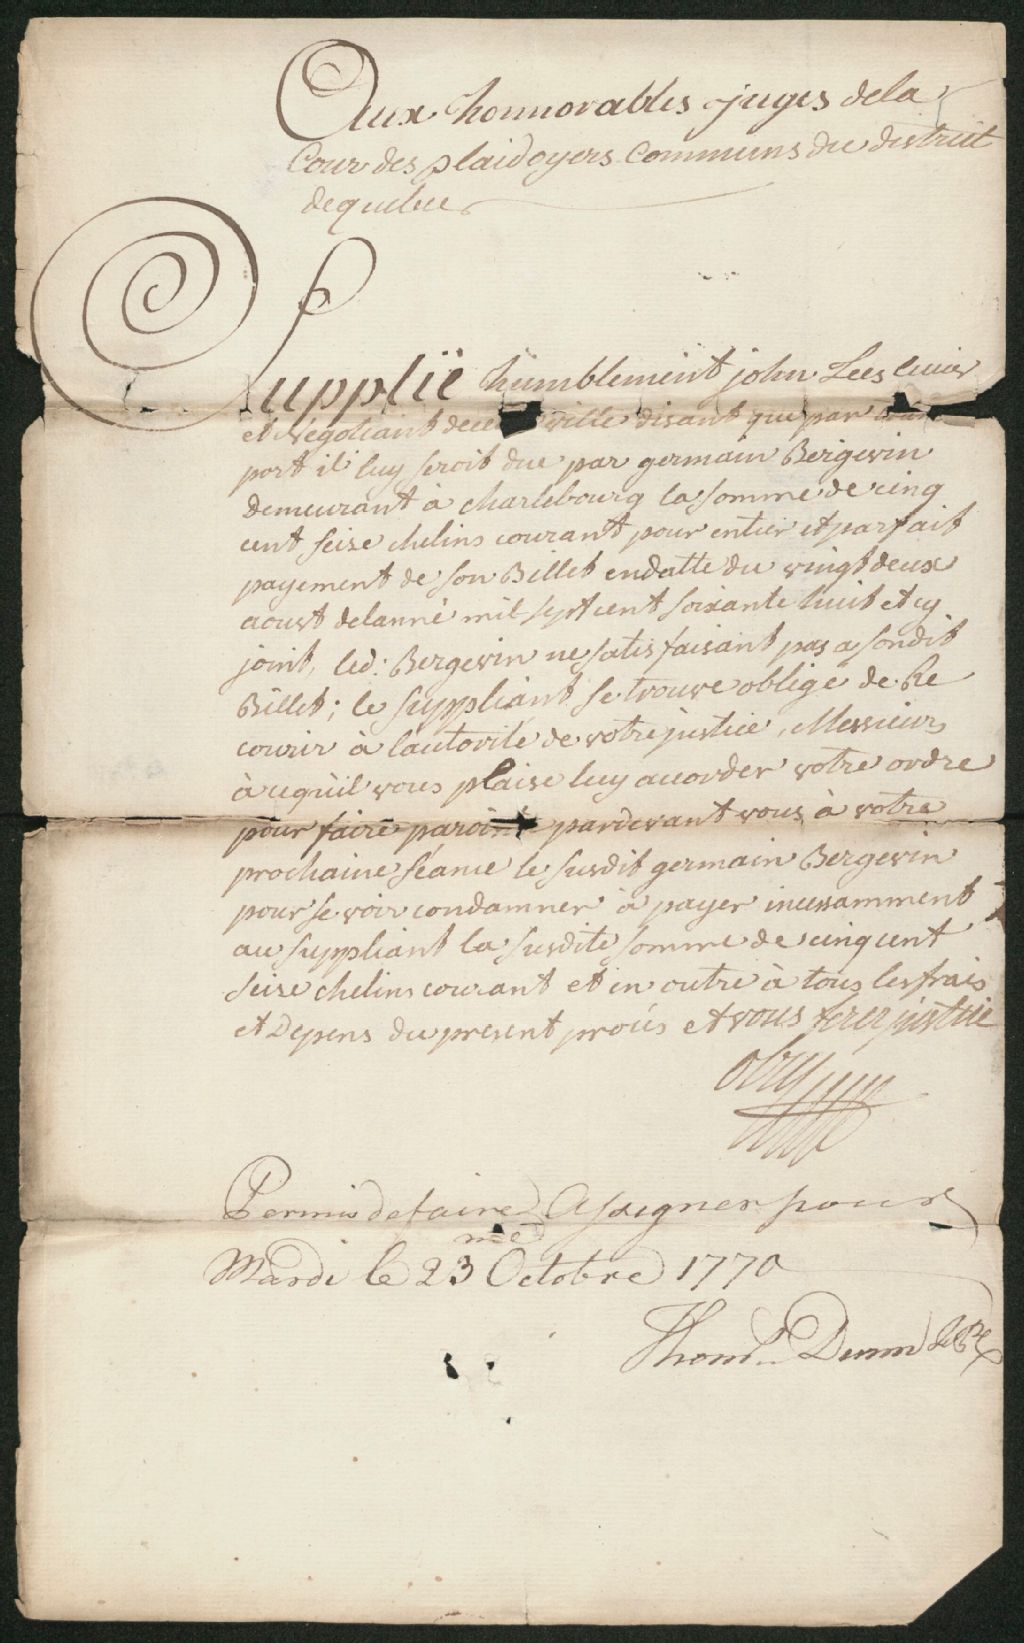 Aux honnorables juges dela
Cour des plaidoyers Communs du district
dequebec
Supplië humblement john Lees ecuier
et Negotiant de cette ville disant que par trans
port il luy seroit due par germain Bergevin
demeurant à charlebourg la somme de cinq
cent seize chelins courant pour entier et parfait
payement de son Billet endatte du vingt deux
aoust delanné mil sept cent soixante huit et cy
joint, led: Bergevin ne satisfaisant pas a sondit
Billet; le suppliant se trouve obligé de Re
courir à lautorité de votre justice, Messieurs
à cequ'il vous plaise luy accorder votre ordre
pour faire paroître pardevant vous à votre
prochaine séance le susdit germain Bergevin
pour se voir condamner à payer incessamment
au suppliant la susdite somme de cinq cent
seize chelins courant et en outre à tous les frais
et Depens du present procés et vous ferez justice
Permis de faire Assigner pour
Mardi le 23 Octobre 1770
Thom. Dunn